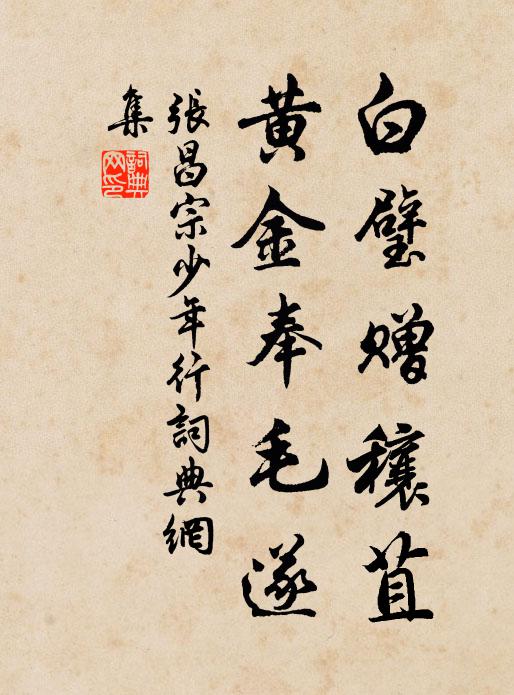 白璧贈穰苴
黃金奉毛遂
張昌宗少年行詞典網
集
詞典
网印